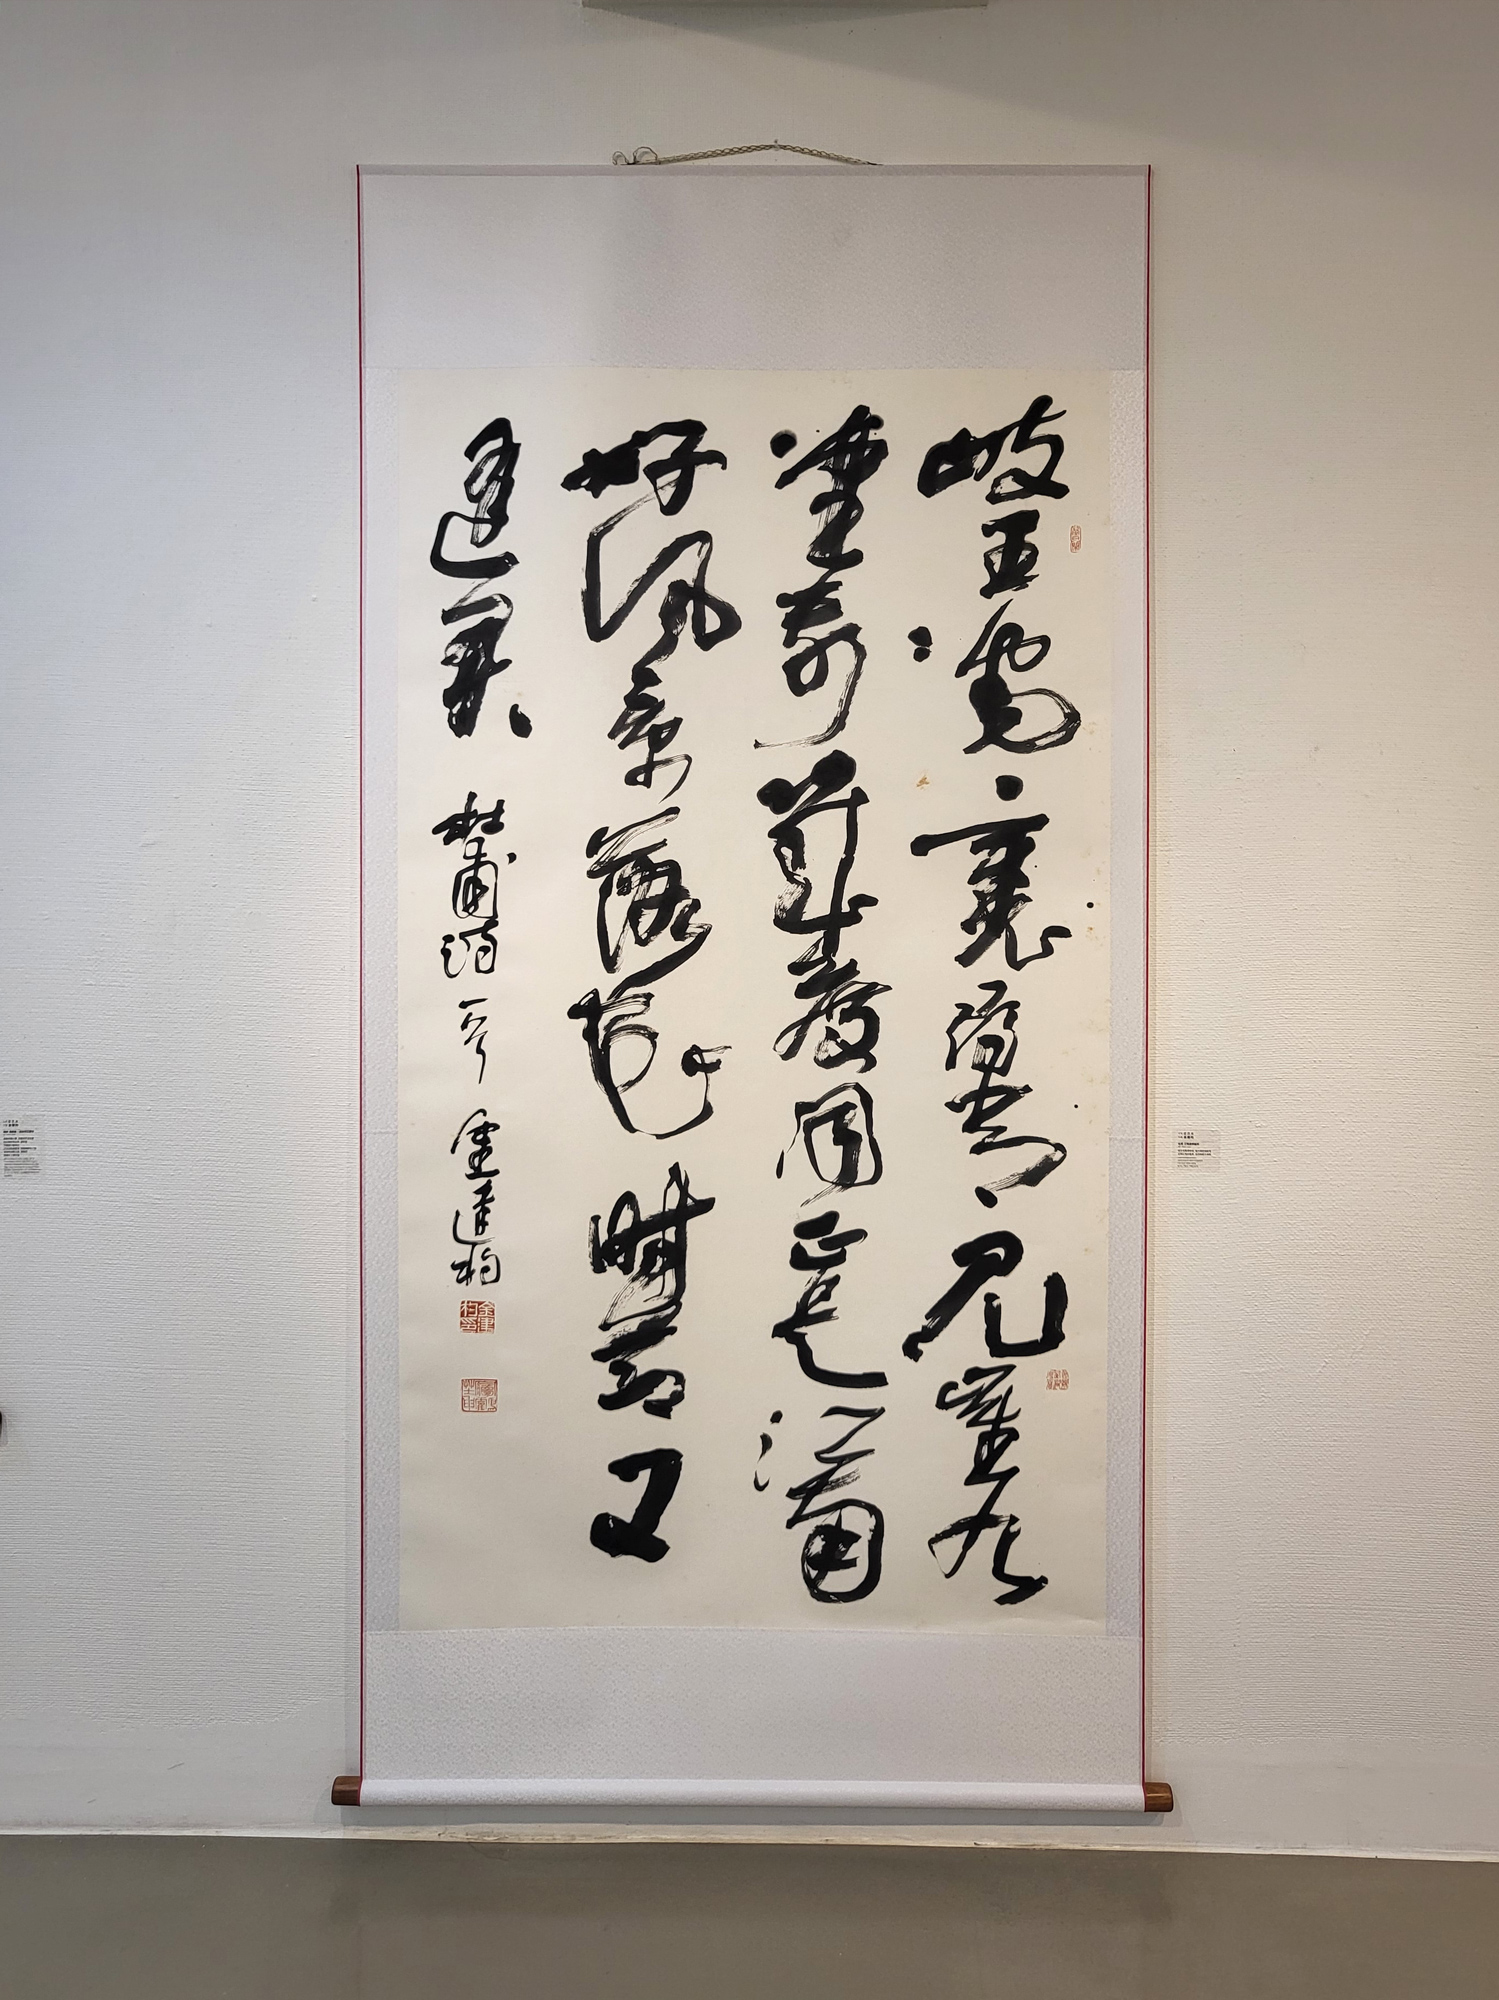 岐王宅裏尋常見崔九
堂前幾度聞正是江南
好風景落花時節又
逢君 杜甫詩一首